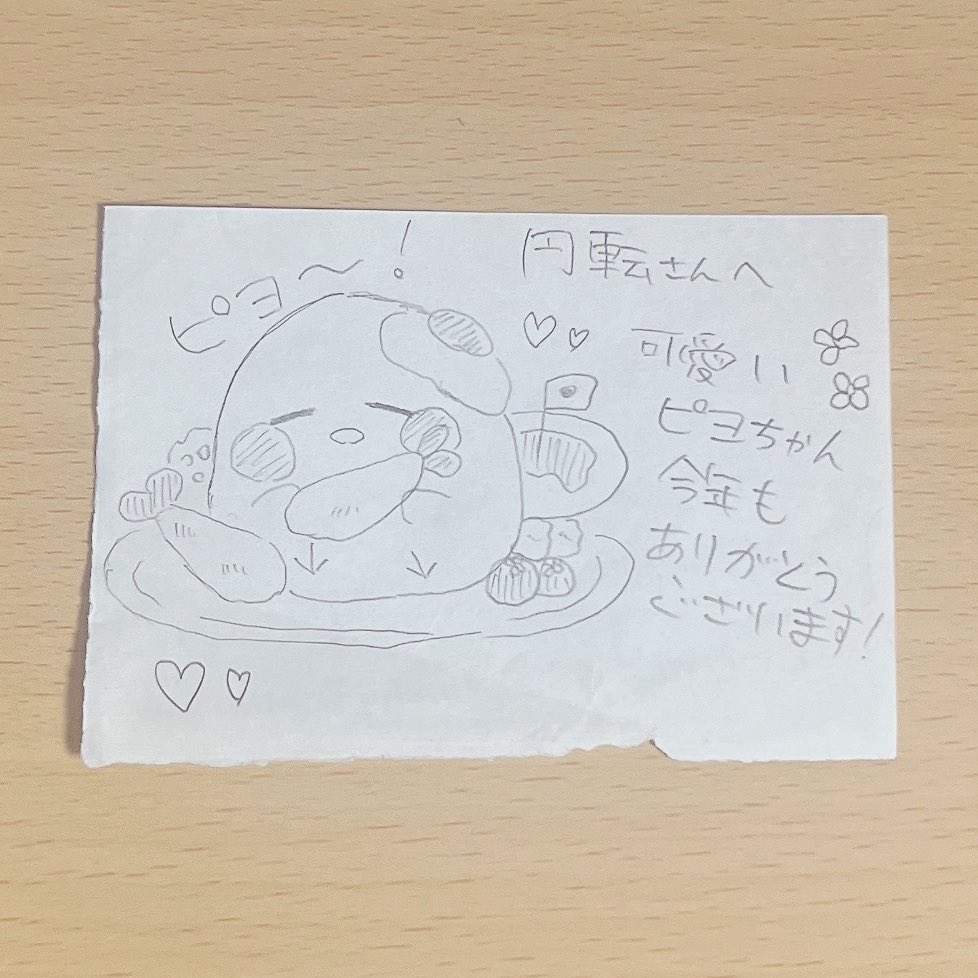 ピヨ〜!
円転さんへ
可愛い
ピヨちゃん
今年も
ありがとう
ございます!